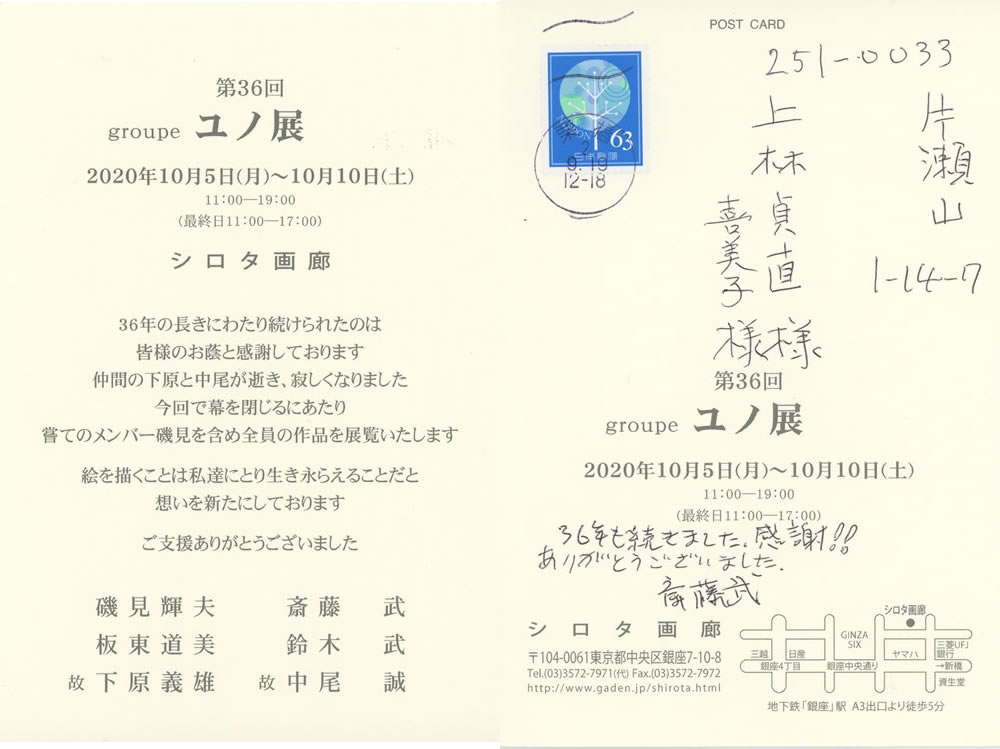 第36回
groupe ユノ展
2020年10月5日(月)～10月10日(土)
11:00—19:00
(最終日11:00—17:00)
シロタ画廊
36年の長きにわたり続けられたのは
皆様のお蔭と感謝しております
仲間の下原と中尾が逝き、寂しくなりました
今回で幕を閉じるにあたり
嘗てのメンバー磯見を含め全員の作品を展覧いたします
絵を描くことは私達にとり生き永らえることだと
想いを新たにしております
ご支援ありがとうございました
磯見輝夫 斎藤 武
板東道美 鈴木 武
故 下原義雄 故 中尾 誠
POST CARD
63
日本郵便
2
9.19
12-18
251-0033
片瀬山
1-14-7
上林貞直様
喜美子様
第36回
groupe ユノ展
2020年10月5日(月)～10月10日(土)
11:00—19:00
(最終日11:00—17:00)
36年も続きました。感謝!!
ありがとうございました。
斎藤武
シロタ画廊
〒104-0061東京都中央区銀座7-10-8
Tel.(03)3572-7971(代) Fax.(03)3572-7972
http://www.gaden.jp/shirota.html
シロタ画廊
GINZA SIX
三越
日産
ヤマハ
三菱UFJ銀行
銀座4丁目
銀座中央通り
→新橋
資生堂
地下鉄「銀座」駅 A3出口より徒歩5分